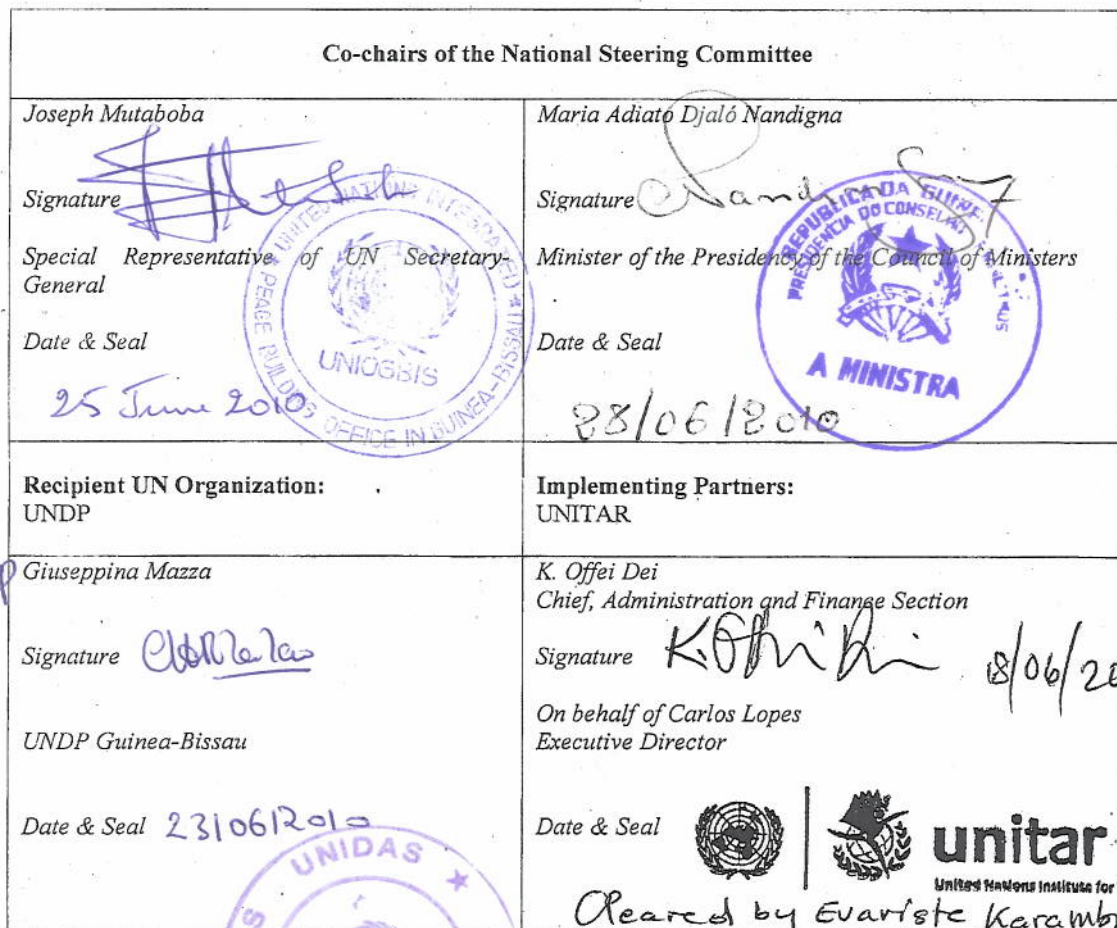 Co-chairs of the National Steering Committee
Joseph Mutaboba
Signature
Special Representative of UN Secretary-
General
Date & Seal
25 June 2010
UNITED NATIONS INTEGRATED PEACE BUILDING OFFICE IN GUINEA-BISSAU
UNIOGBIS
Maria Adiató Djaló Nandigna
Signature
Minister of the Presidency of the Council of Ministers
Date & Seal
28/06/2010
REPUBLICA DA GUINE
PRESIDENCIA DO CONSELHO
A MINISTRA
Recipient UN Organization:
UNDP
Implementing Partners:
UNITAR
Giuseppina Mazza
Signature
UNDP Guinea-Bissau
Date & Seal 23/06/2010
UNIDAS
K. Offei Dei
Chief, Administration and Finance Section
Signature K. Offei Dei 18/06/20
On behalf of Carlos Lopes
Executive Director
Date & Seal
unitar
United Nations Institute for
Cleared by Evariste Karambi